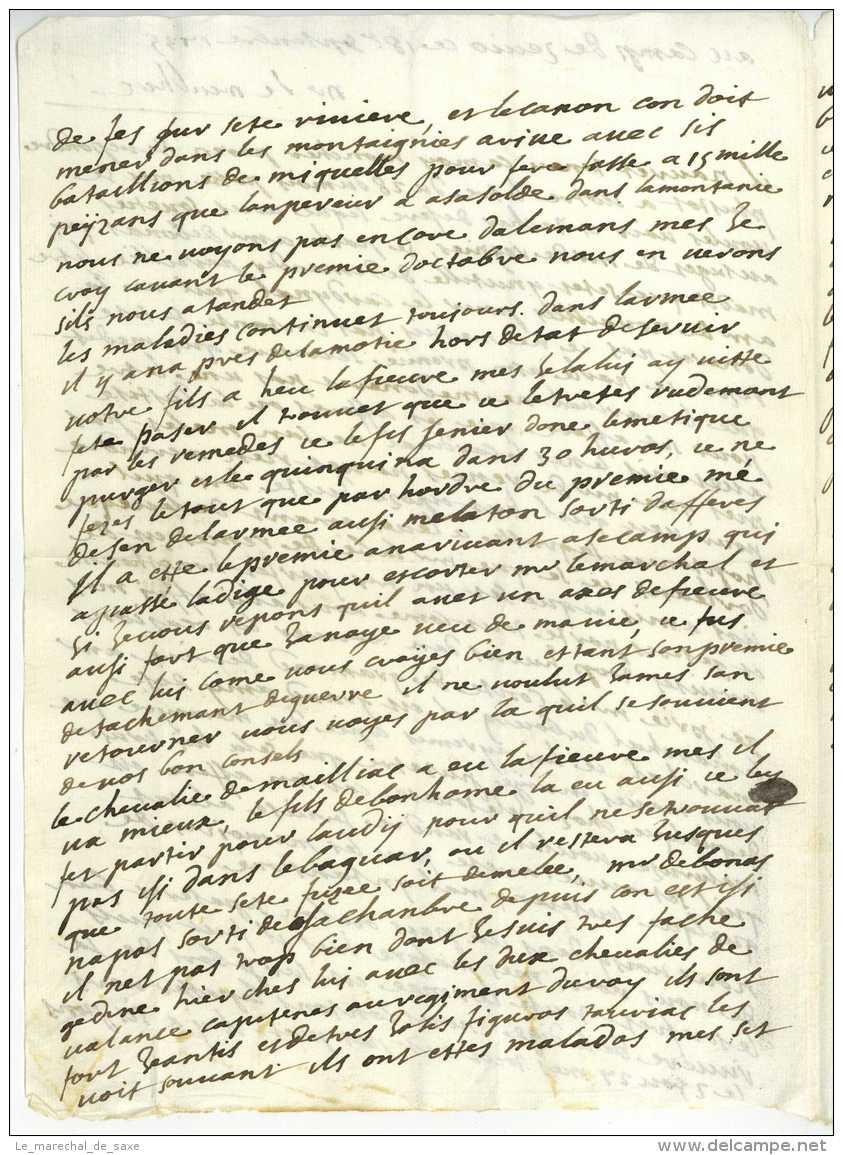 de fes sur sete riviere, et le canon con doit
mener dans les montaignies arive avec sis
bataillions de miquelles pour fere fasse a 15 mille
peyzans que lanpereur a asasolde dans lamontanie
nous ne voyons pas encore dalemans mes ze
croy cavant le premie doctabre nous en verons
sils nous atandet
les maladies continuet toujours dans larmee
il y ana pres delamotie hors detat deservir
votre fils a heu lafievre mes zelalui ay vitte
fete paser il trouvet que ce letretes rudemant
par les remedes ce lefis senier done lemetique
purger et le quinquina dans 30 hures, ce ne
fezes le tout que par hordre du premie mé
desen delarmee ausi melaton sorti dafferes
il a ette lepremie anarivant asecamp qui
a passe ladige pour escorter mr lemarchal et
zi zevous repons quil avet un axes defievre
ausi fort que zanaye veu de mavie, ce fus
avec luis come vous croyes bien ettant sonpremie
detachemant deguerre il ne voulut zames san
retourner vous voyes par la quil se souvient
de vos bon consels
le chevalie demailliac a eu lafievre mes il
va mieux, le fils debonhome la eu ausi ce les
fet partir pour laudij pour quil ne setrouvat
pas isi dans lebaguar, ou il restera zusques
que toute sete fuzee soit demelee, mr debonas
napas sorti desachanbre depuis con est isi
il net pas trop bien dont zesuis tres fache
zedine hier ches lui avec les deux chevalies de
valance capitenes auregiment duroy ils sont
fort zeantis et detres zolis figures tauriac les
voit souvant ils ont ettes malades mes set
Le_marechal_de_saxe